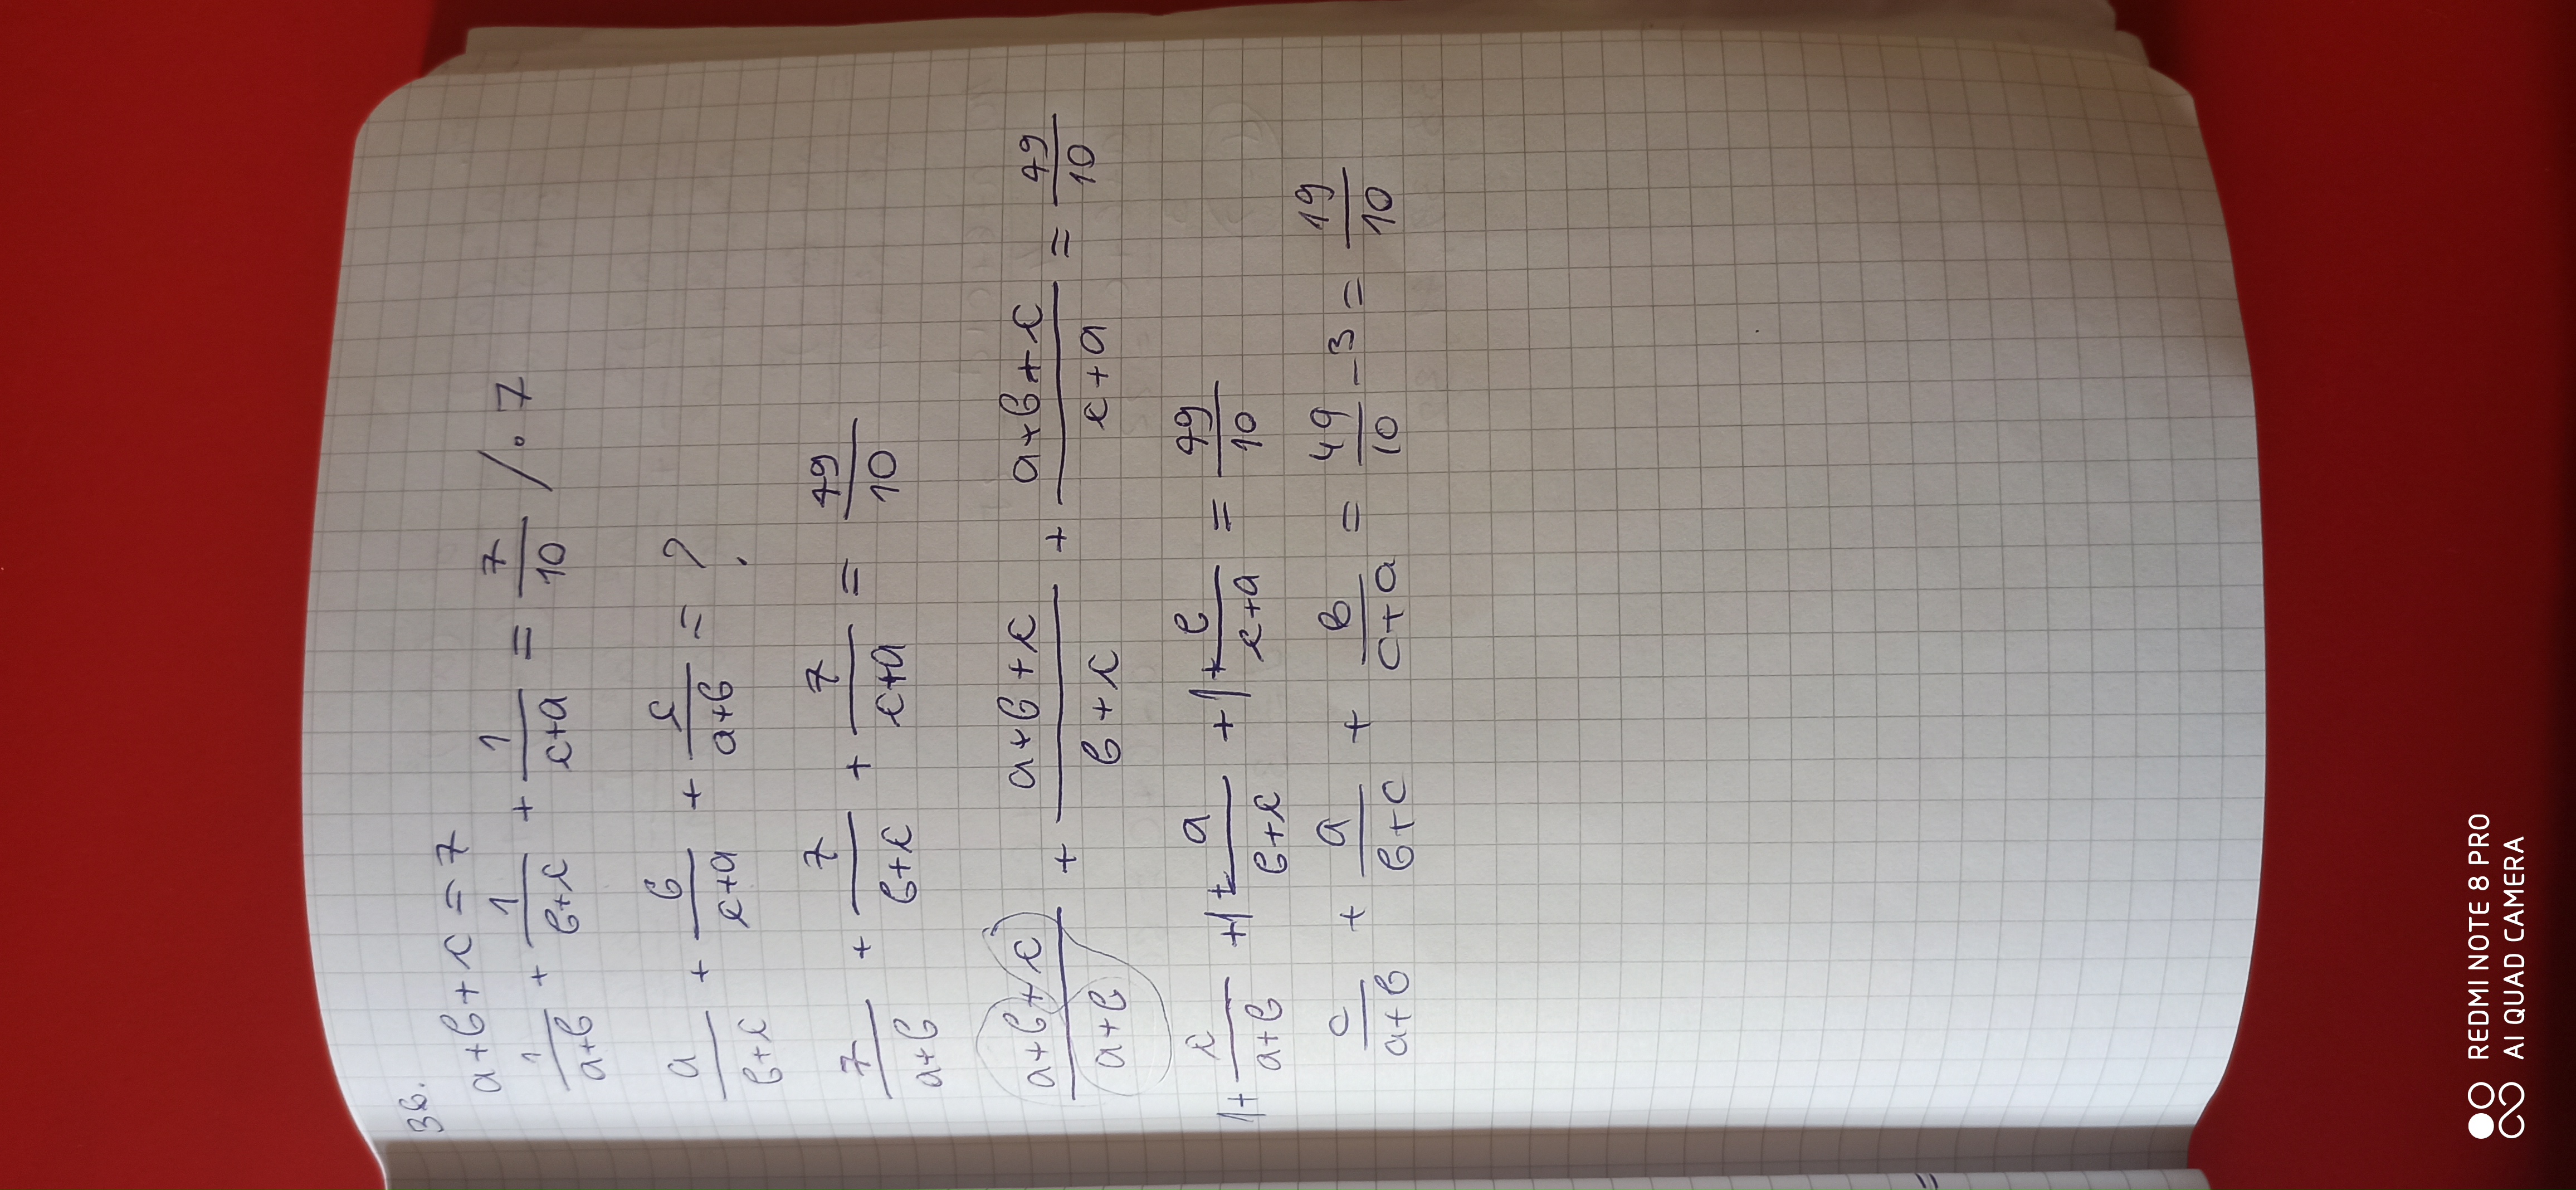 36.
a+в+c=7
1/(a+в) + 1/(в+c) + 1/(c+a) = 7/10 /·7
a/(в+c) + в/(c+a) + c/(a+в) = ?
7/(a+в) + 7/(в+c) + 7/(c+a) = 49/10
(a+в+c)/(a+в) + (a+в+c)/(в+c) + (a+в+c)/(c+a) = 49/10
1+ c/(a+в) +1+ a/(в+c) +1+ в/(c+a) = 49/10
c/(a+в) + a/(в+c) + в/(c+a) = 49/10 - 3 = 19/10
=
REDMI NOTE 8 PRO
AI QUAD CAMERA